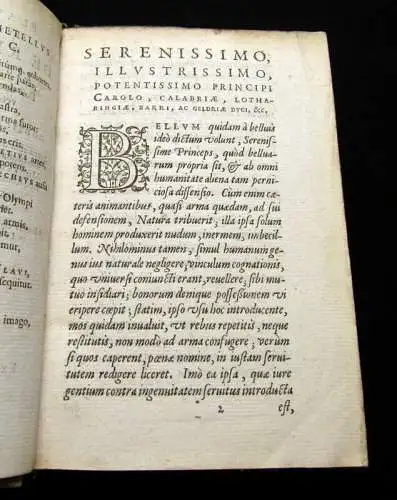 METELLVS
C.
SERENISSIMO,
ILLVSTRISSIMO,
POTENTISSIMO PRINCIPI
CAROLO, CALABRIÆ, LOTHA-
RINGIÆ, BARRI, AC GELDRIÆ DVCI, &c.
BELLVM quidam à belluis
ideò dictum volunt, Serenis-
sime Princeps, quòd belluar-
rum propria sit, & ab omni
humanitate aliena tam per-
niciosa dissensio. Cùm enim cæ-
teris animantibus, quasi arma quædam, ad sui
defensionem, Natura tribuerit, illa ipsa solum
hominem produxerit nudum, inermem, imbecil-
lum. Nihilominus tamen, simul humanum ge-
nus ius naturale negligere, vinculum cognationis,
quo vniuersi coniuncti erant, reuellere, sibi mu-
tuò insidiari; bonorum denique possessionem vi
eripere cœpit; statim, ipso vsu hoc introducente,
mos quidam inualuit, vt rebus repetitis, neque
restitutis, non modò ad arma confugere; verùm
si quos caperent, pœnæ nomine, in iustam serui-
tutem redigere liceret. Imò ea ipsa, quæ iure
gentium contra ingenuitatem seruitus introducta
2 est,
Olympi
imago,